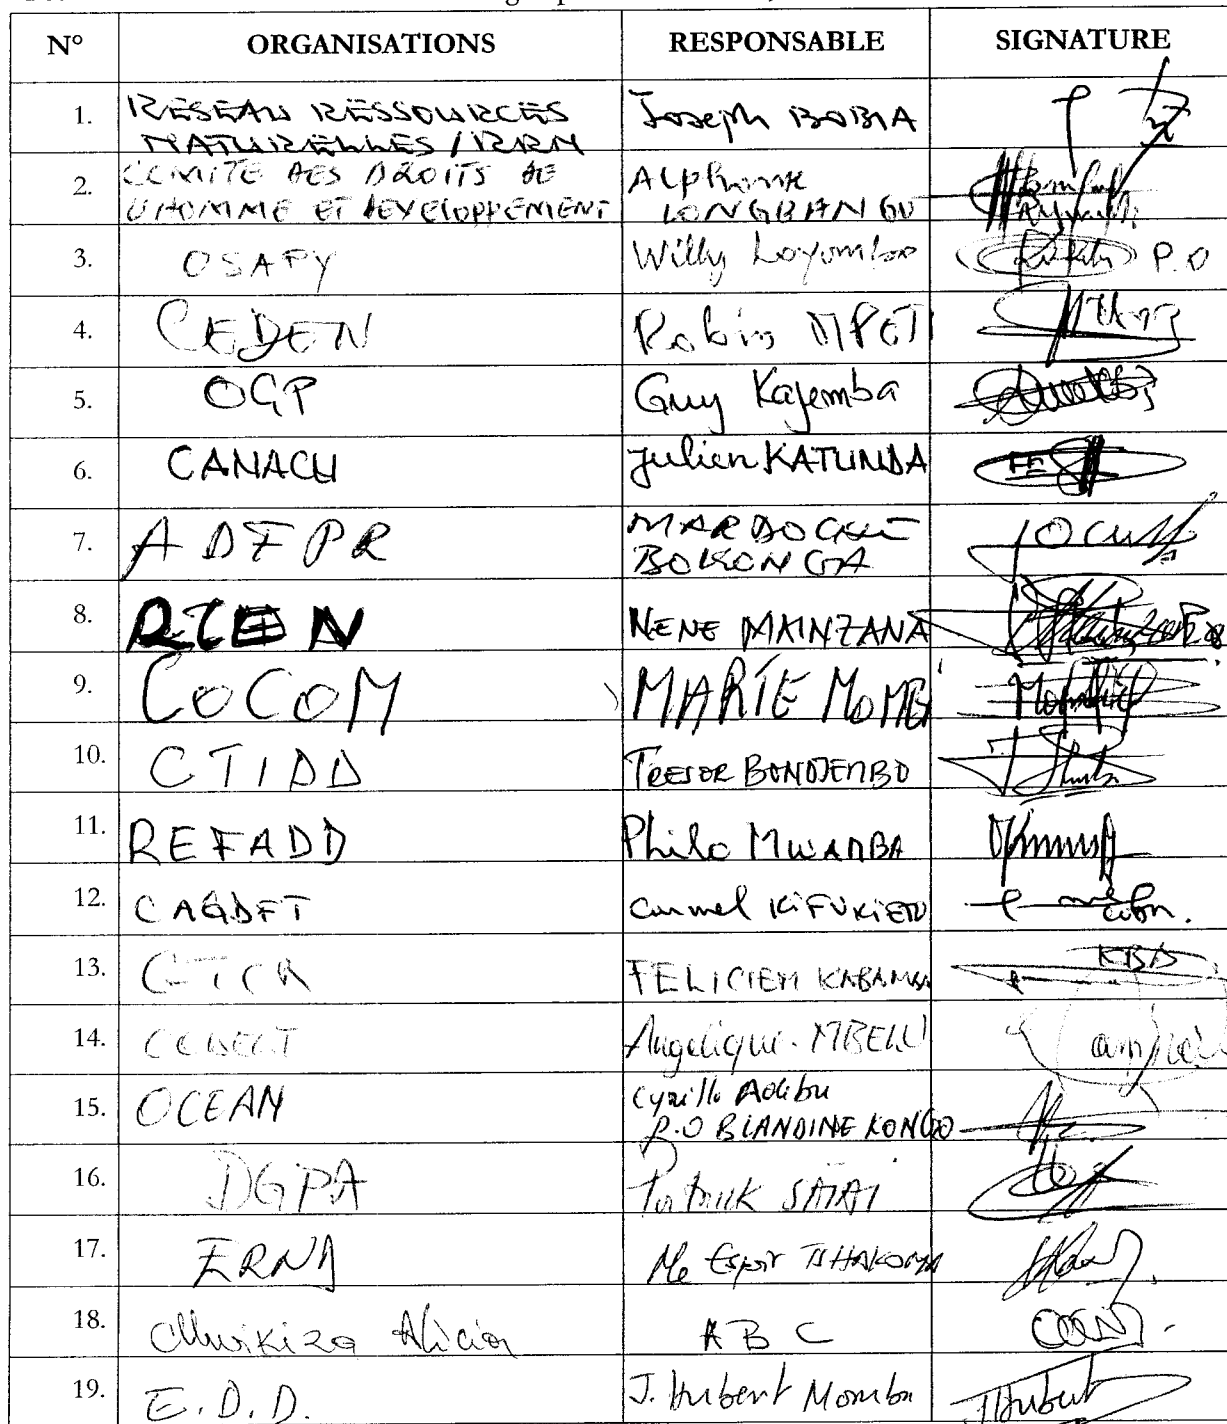 N° ORGANISATIONS RESPONSABLE SIGNATURE
1. RESEAU RESSOURCES NATURELLES / RRN Joseph BOBIA
2. COMITE DES DROITS DE L'HOMME ET DEVELOPPEMENT Alphonse LONGBANGO
3. OSAPY Willy Loyombo P.O
4. CEDEN Robin MPETI
5. OGP Guy Kajemba
6. CANACU Julien KATUNDA
7. ADFPR MARDOCHE BOKONGA
8. RCEN NENE MAINZANA
9. COCOM MARIE MOMBI
10. CTIDD TRESOR BONDJEMBO
11. REFADD Philo MWAMBA
12. CAGDFT Carmel KIFUKIETO
13. GTCR FELICIEN KABAMBA
14. Angelique MBELU
15. OCEAN Cyrille Adebu P.O BLANDINE KONGO
16. DGPA Patrick SAIDI
17. ERND Me Espoir TSHAKOMA
18. Mwikiza Alicia A B C
19. E.D.D. J. Hubert Momba J Hubert